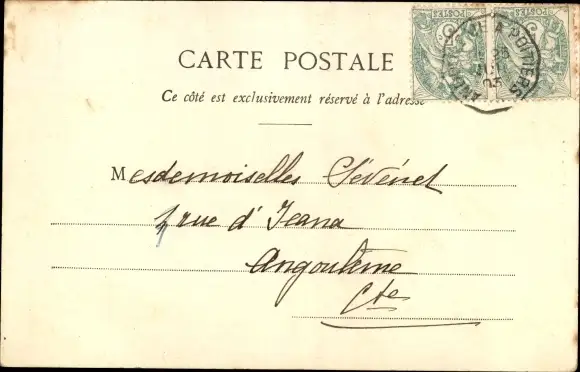 POSTES POSTES
A POITIERS
03
CARTE POSTALE
Ce côté est exclusivement réservé à l'adresse
Mesdemoiselles Sévénet
rue d'Ieana
Angoulême
Cte